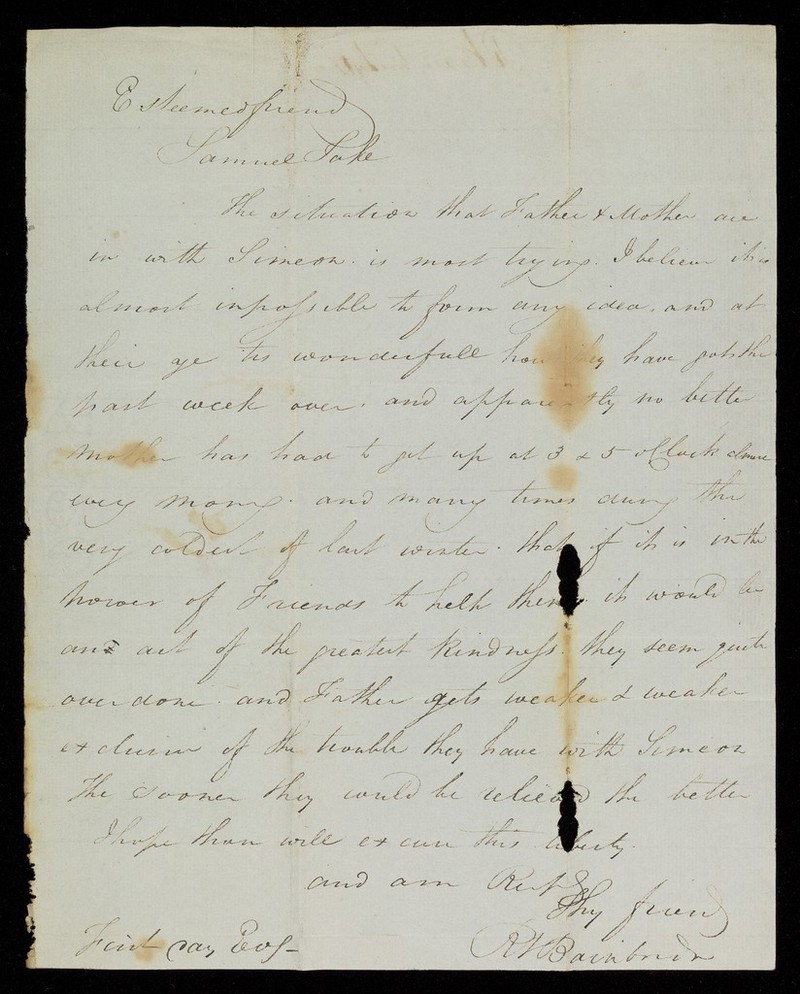 Esteemed friend
Samuel
The situation that Father & Mother are
in with Simeon. is most trying. I believe it is
almost inpossible to form any idea. and at
their age tis wonderfull how they have got the
past week over. and apparently no better
Mother has had to get up at 3 & 5 oClock almost
every morng. and many times durng the
very coldest of last winter. that if it is in the
power of Friends to help them. it would be
an act of the greatest Kindness. they seem quite
over done. and Father gets weaker & weaker
exclusive of the trouble they have with Simeon
The sooner they would be relieved the better
I hope thou will excuse this liberty.
and am Respy
Thy friend
Bainbridge
First day Evg